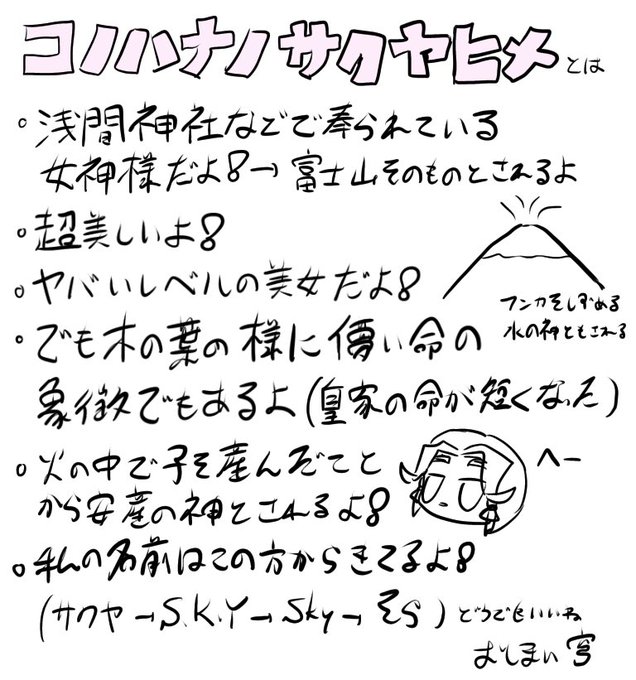 コノハナノサクヤヒメとは
浅間神社などで奉られている
女神様だよ!→富士山そのものとされるよ
超美しいよ!
ヤバいレベルの美女だよ!
フンカをしずめる
水の神ともされる
でも木の葉の様に儚い命の
象徴でもあるよ(皇家の命が短くなった)
火の中で子を産んだこと
から安産の神とされるよ!
へー
私の名前はこの方からきてるよ!
(サクヤ→S.K.Y→Sky→そら)どうでもいいね
おしまい